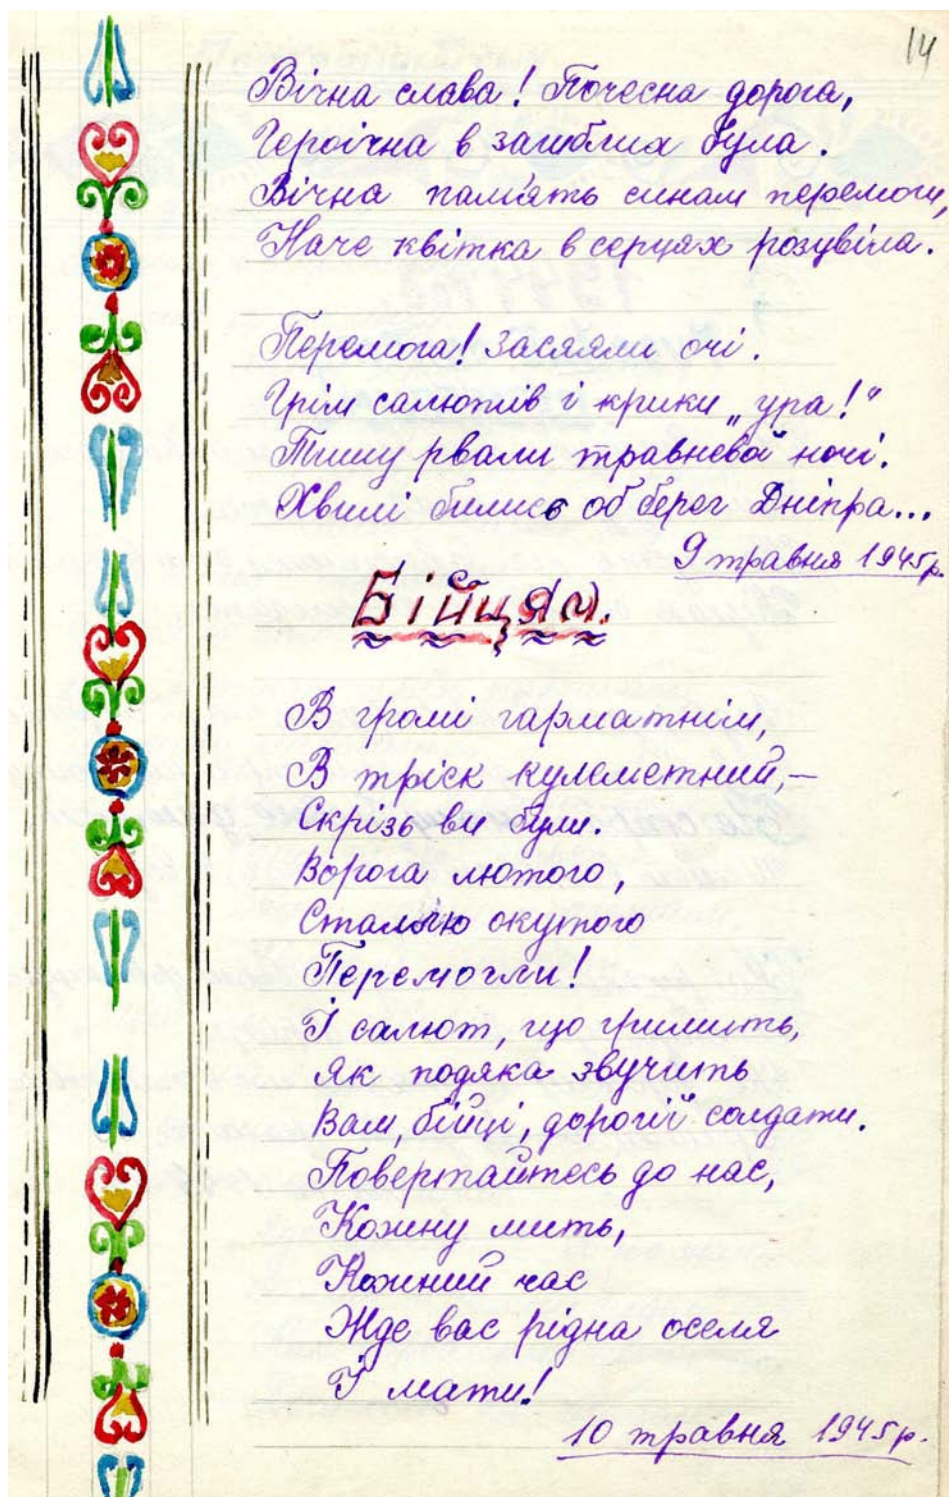 14
Вічна слава! Почесна дорога,
Героїчна в загиблих була.
Вічна пам'ять синам перемоги,
Наче квітка в серцях розцвіла.
Перемога! Засяяли очі.
Грім салютів і крики „ура!“
Тишу рвали травневої ночі.
Хвилі бились об берег Дніпра...
9 травня 1945р.
Бійцям.
В громі гарматнім,
В тріск кулеметний,–
Скрізь ви були.
Ворога лютого,
Сталлю окутого
Перемогли!
І салют, що гримить,
Як подяка звучить
Вам, бійці, дорогії солдати.
Повертайтесь до нас,
Кожну мить,
Кожний час
Жде вас рідна оселя
І мати!
10 травня 1945р.